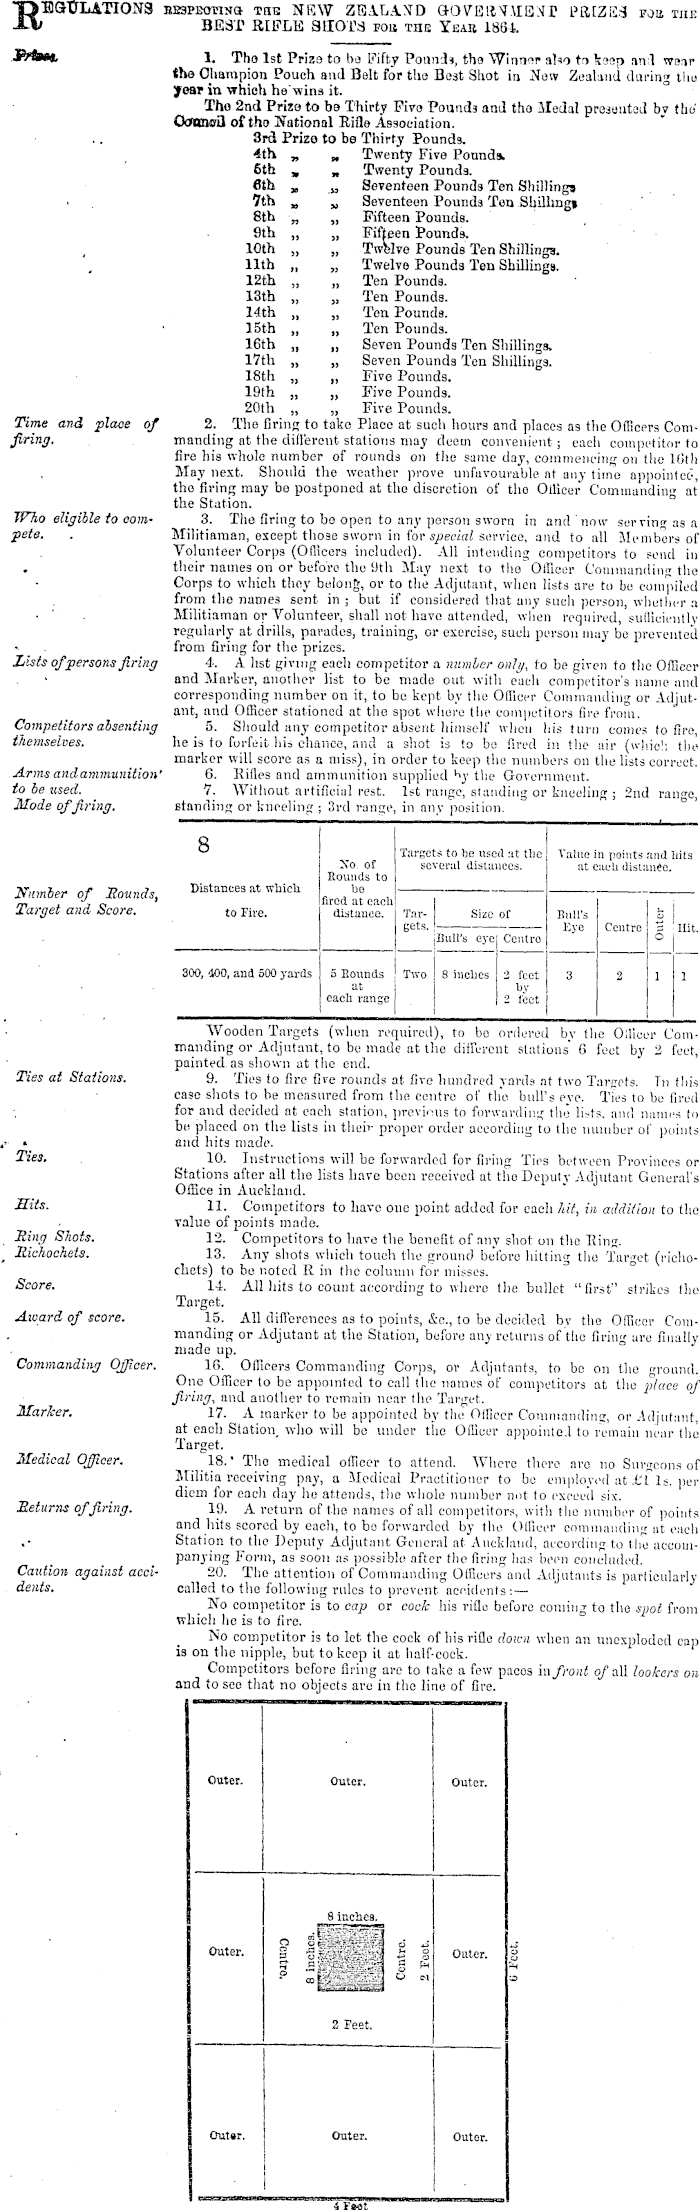 REGULATIONS RESPECTING THE NEW ZEALAND GOVERNMENT PRIZES FOR THE
BEST RIFLE SHOTS FOR THE YEAR 1864.
Prizes.
1. The 1st Prize to be Fifty Pounds, the Winner also to keep and wear
the Champion Pouch and Belt for the Best Shot in New Zealand during the
year in which he wins it.
The 2nd Prize to be Thirty Five Pounds and the Medal presented by the
Council of the National Rifle Association.
3rd Prize to be Thirty Pounds.
4th „ „ Twenty Five Pounds.
5th „ „ Twenty Pounds.
6th „ „ Seventeen Pounds Ten Shillings
7th „ „ Seventeen Pounds Ten Shillings
8th „ „ Fifteen Pounds.
9th „ „ Fifteen Pounds.
10th „ „ Twelve Pounds Ten Shillings.
11th „ „ Twelve Pounds Ten Shillings.
12th „ „ Ten Pounds.
13th „ „ Ten Pounds.
14th „ „ Ten Pounds.
15th „ „ Ten Pounds.
16th „ „ Seven Pounds Ten Shillings.
17th „ „ Seven Pounds Ten Shillings.
18th „ „ Five Pounds.
19th „ „ Five Pounds.
20th „ „ Five Pounds.
Time and place of
firing.
2. The firing to take Place at such hours and places as the Officers Com-
manding at the different stations may deem convenient; each competitor to
fire his whole number of rounds on the same day, commencing on the 16th
May next. Should the weather prove unfavourable at any time appointed,
the firing may be postponed at the discretion of the Officer Commanding at
the Station.
Who eligible to com-
pete.
3. The firing to be open to any person sworn in and now serving as a
Militiaman, except those sworn in for special service, and to all Members of
Volunteer Corps (Officers included). All intending competitors to send in
their names on or before the 9th May next to the Officer Commanding the
Corps to which they belong, or to the Adjutant, when lists are to be compiled
from the names sent in; but if considered that any such person, whether a
Militiaman or Volunteer, shall not have attended, when required, sufficiently
regularly at drills, parades, training, or exercise, such person may be prevented
from firing for the prizes.
Lists of persons firing
4. A list giving each competitor a number only, to be given to the Officer
and Marker, another list to be made out with each competitor's name and
corresponding number on it, to be kept by the Officer Commanding or Adjut-
ant, and Officer stationed at the spot where the competitors fire from.
Competitors absenting
themselves.
5. Should any competitor absent himself when his turn comes to fire,
he is to forfeit his chance, and a shot is to be fired in the air (which the
marker will score as a miss), in order to keep the numbers on the lists correct.
Arms and ammunition
to be used.
6. Rifles and ammunition supplied by the Government.
Mode of firing.
7. Without artificial rest. 1st range, standing or kneeling; 2nd range,
standing or kneeling; 3rd range, in any position.
Number of Rounds,
Target and Score.
8
Distances at which
to Fire.
No. of
Rounds to
be
fired at each
distance.
Targets to be used at the
several distances.
Tar-
gets.
Size of
Bull's eye
Centre
Value in points and hits
at each distance.
Bull's
Eye
Centre
Outer
Hit.
300, 400, and 500 yards
5 Rounds
at
each range
Two
8 inches
2 feet
by
2 feet
3
2
1
1
Wooden Targets (when required), to be ordered by the Officer Com-
manding or Adjutant, to be made at the different stations 6 feet by 2 feet,
painted as shown at the end.
Ties at Stations.
9. Ties to fire five rounds at five hundred yards at two Targets. In this
case shots to be measured from the centre of the bull's eye. Ties to be fired
for and decided at each station, previous to forwarding the lists, and names to
be placed on the lists in their proper order according to the number of points
and hits made.
Ties.
10. Instructions will be forwarded for firing Ties between Provinces or
Stations after all the lists have been received at the Deputy Adjutant General's
Office in Auckland.
Hits.
11. Competitors to have one point added for each hit, in addition to the
value of points made.
Ring Shots.
12. Competitors to have the benefit of any shot on the Ring.
Richochets.
13. Any shots which touch the ground before hitting the Target (richo-
chets) to be noted R in the column for misses.
Score.
14. All hits to count according to where the bullet "first" strikes the
Target.
Award of score.
15. All differences as to points, &c., to be decided by the Officer Com-
manding or Adjutant at the Station, before any returns of the firing are finally
made up.
Commanding Officer.
16. Officers Commanding Corps, or Adjutants, to be on the ground.
One Officer to be appointed to call the names of competitors at the place of
firing, and another to remain near the Target.
Marker.
17. A marker to be appointed by the Officer Commanding, or Adjutant,
at each Station, who will be under the Officer appointed to remain near the
Target.
Medical Officer.
18. The medical officer to attend. Where there are no Surgeons of
Militia receiving pay, a Medical Practitioner to be employed at £1 1s. per
diem for each day he attends, the whole number not to exceed six.
Returns of firing.
19. A return of the names of all competitors, with the number of points
and hits scored by each, to be forwarded by the Officer commanding at each
Station to the Deputy Adjutant General at Auckland, according to the accom-
panying Form, as soon as possible after the firing has been concluded.
Caution against acci-
dents.
20. The attention of Commanding Officers and Adjutants is particularly
called to the following rules to prevent accidents:—
No competitor is to cap or cock his rifle before coming to the spot from
which he is to fire.
No competitor is to let the cock of his rifle down when an unexploded cap
is on the nipple, but to keep it at half-cock.
Competitors before firing are to take a few paces in front of all lookers on
and to see that no objects are in the line of fire.
Outer.
Outer.
Outer.
Outer.
Centre.
8 inches.
8 inches.
Centre.
2 Feet.
2 Feet.
Outer.
6 Feet.
Outer.
Outer.
Outer.
4 Feet